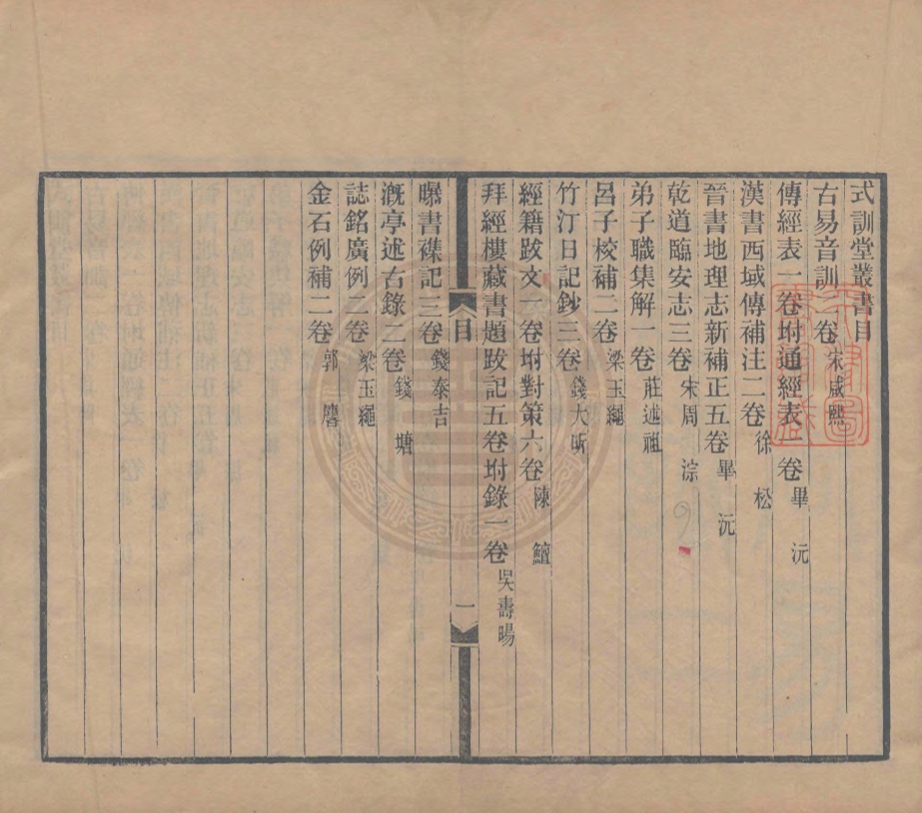 式訓堂叢書目
古易音訓二卷 宋咸熙
傳經表一卷坿通經表一卷 畢沅
漢書西域傳補注二卷 徐松
晉書地理志新補正五卷 畢沅
乾道臨安志三卷 宋周淙
弟子職集解一卷 莊述祖
呂子校補二卷 梁玉繩
竹汀日記鈔三卷 錢大昕
經籍跋文一卷坿對策六卷 陳鱣
拜經樓藏書題跋記五卷坿錄一卷 吳壽暘
目 一
曝書襍記三卷 錢泰吉
溉亭述古錄二卷 錢塘
誌銘廣例二卷 梁玉繩
金石例補二卷 郭麐